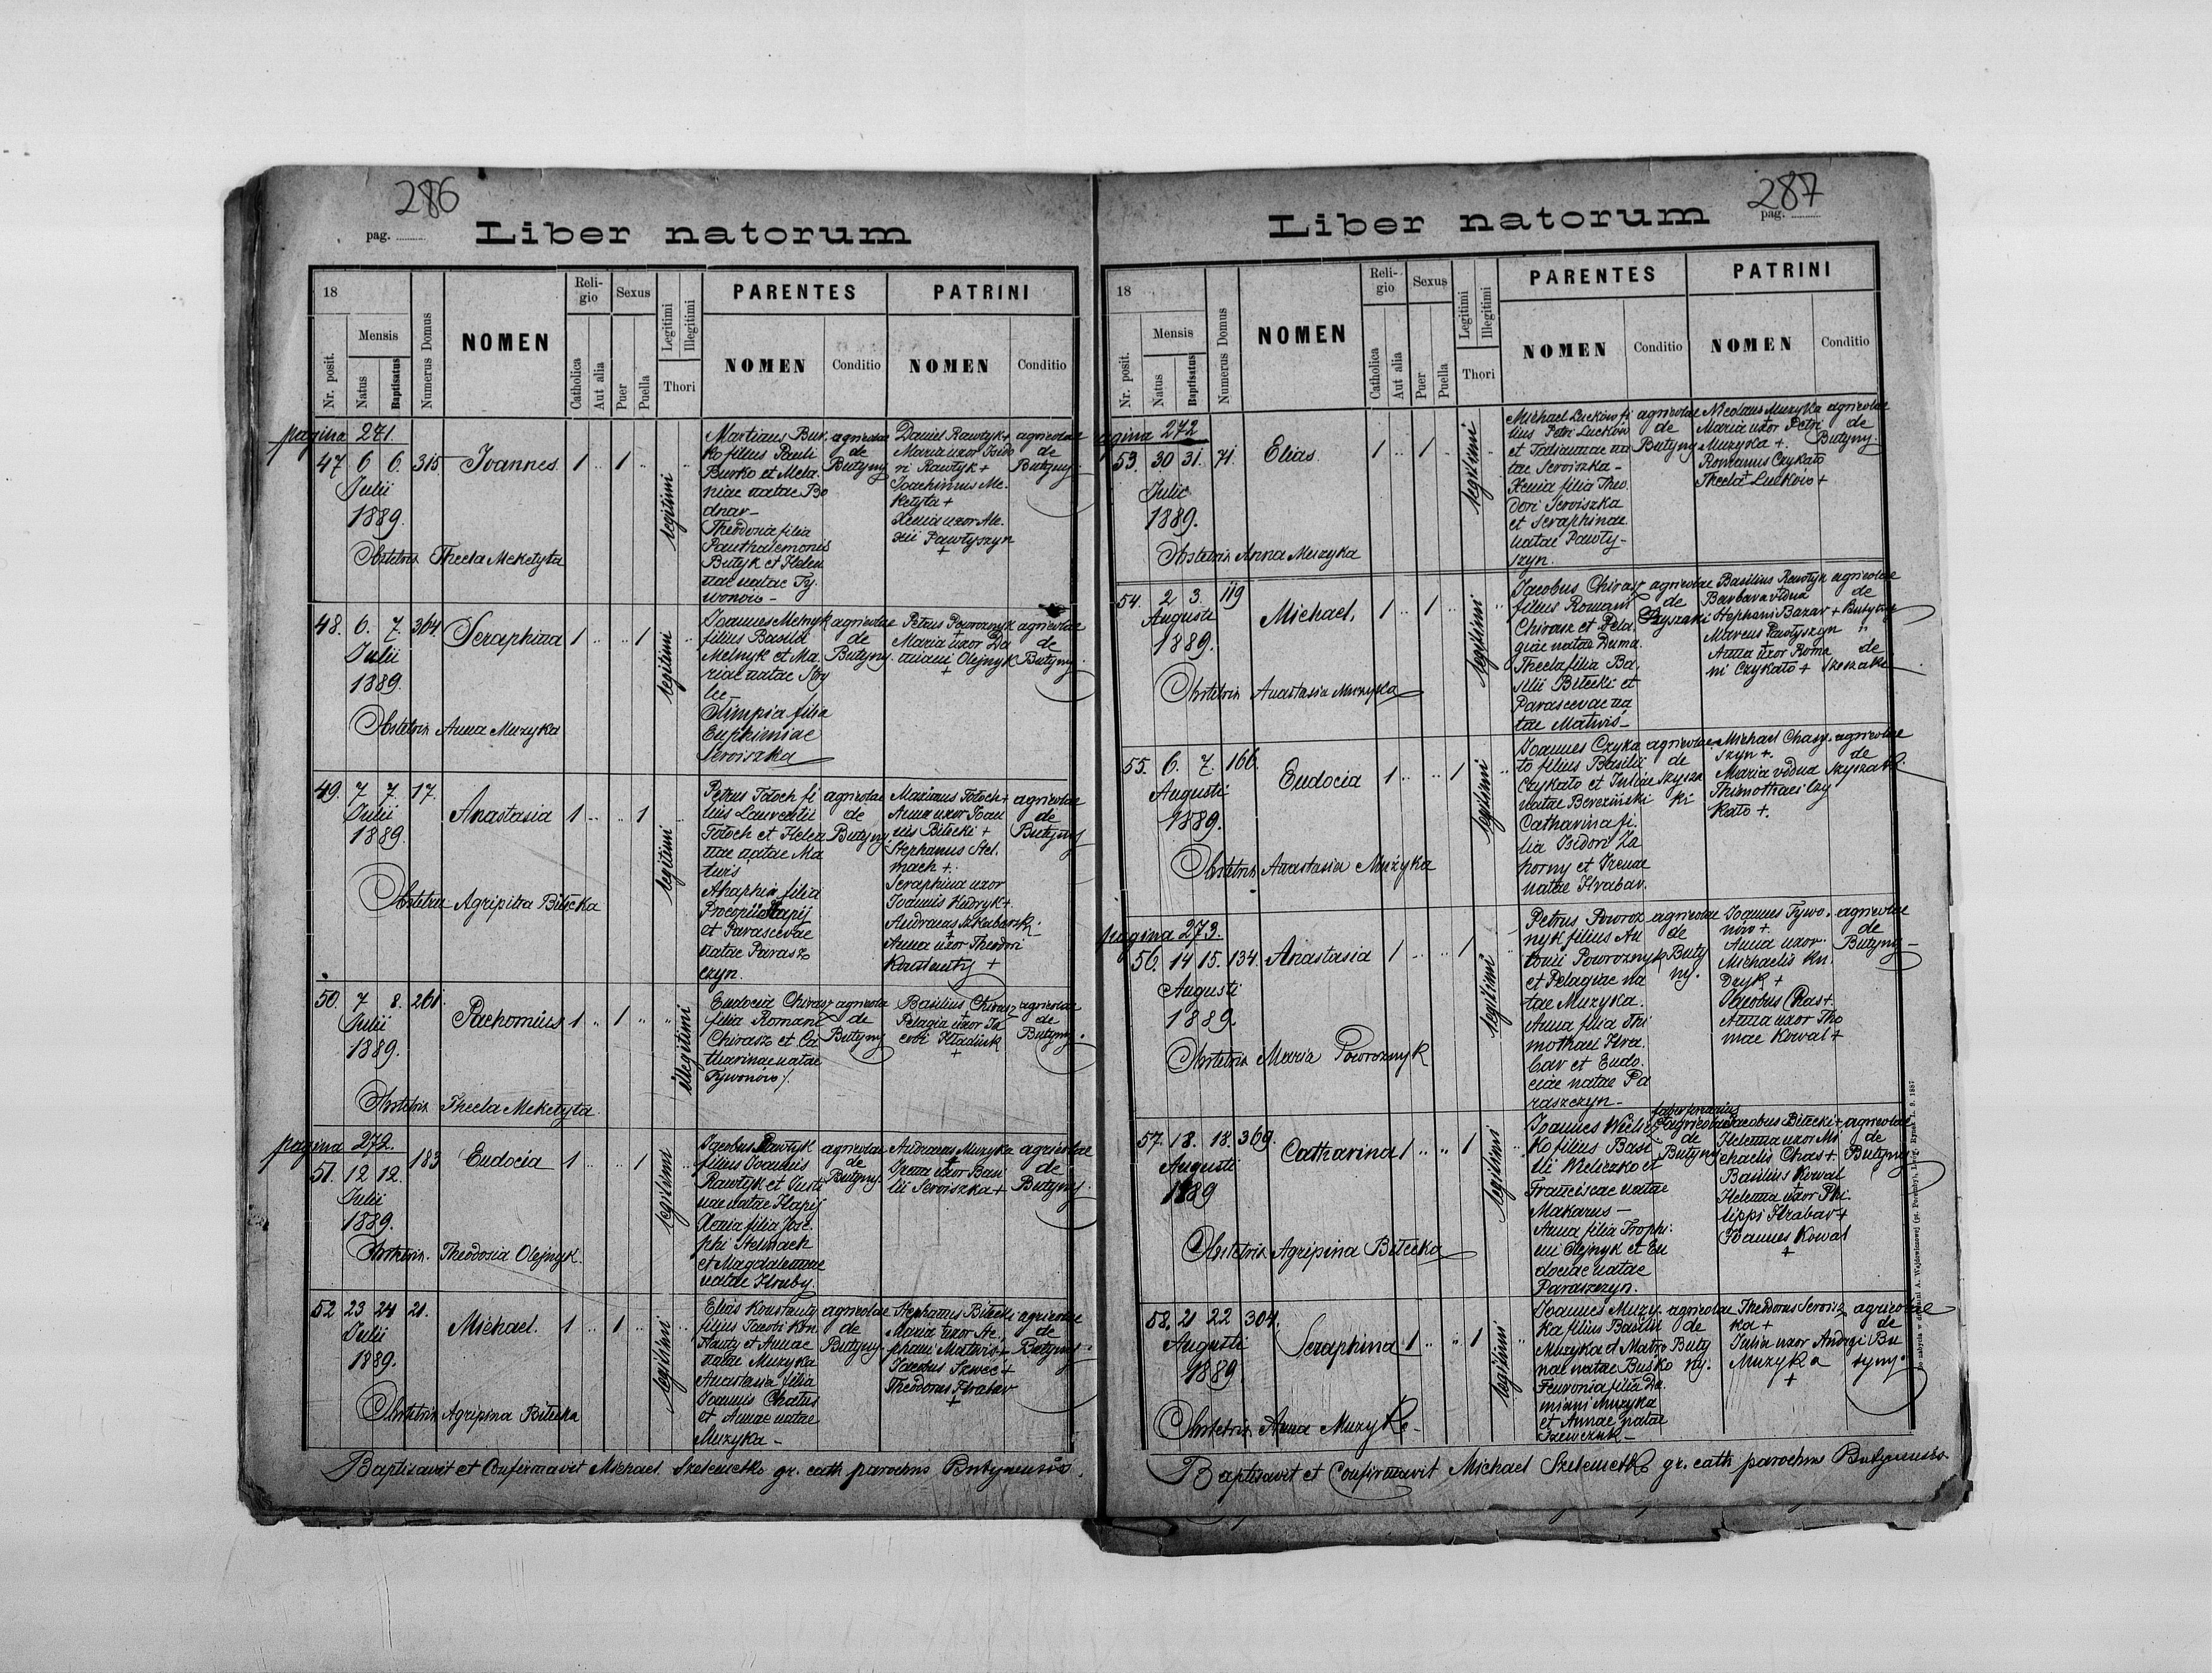 286
pag.
Liber natorum
18
Nr. posit.
Mensis
Natus
Baptisatus
Numerus Domus
NOMEN
Religio
Catholica
Aut alia
Sexus
Puer
Puella
Legitimi
Illegitimi
Thori
PARENTES
NOMEN
Conditio
PATRINI
NOMEN
Conditio
pagina 271.
47. 6 6. 315 Joannes. 1 .. 1 ..
Julii
1889.
legitimi
Obstetrix Thecla Meketyta
Martianus Bur-
ko filius Pauli
Burko et Mela-
niae natae Bo
dnar-
Theodosia filia
Panthalemonis
Butyk et Helen
nae natae Ty-
wonów-
agricolae
de
Butyny
Daniel Rawłyk +
Maria uxor Isido
ri Rawłyk +
Joachimus Me-
ketyta +
Xenia uxor Ale-
xii Pawłyszyn
+
agricolae
de
Butyny
48. 6. 7. 364. Seraphina 1 .. .. 1
Julii
1889.
legitimi
Obstetrix Anna Muzyka
Joannes Melnyk
filius Basilii
Melnyk et Ma-
riae natae
lec-
Olimpia filia
Euphimiae
Seroiszka
agricolae
de
Butyny.
Petrus Poworoznyk
+
Maria uxor Da
miani Olejnyk
+
agricolae
de
Butyny.
49. 7 7. 17. Anastasia 1 .. .. 1
Julii
1889.
legitimi
Obstetrix Agripina Biłecka
Petrus Tołoch fi
lius Laurentii
Tołoch et Hele
nae natae Ma
twis
Ahaphia filia
Procopii Hapij
et Parascevae
natae Parasz
czyn.
agricolae
de
Butyny.
Maximus Tołoch +
Anna uxor Joan
nis Biłecki +
Stephanus Stel-
mach +.
Seraphina uxor
Joannis Kudryk +
Andreas Szkabarski
+
Anna uxor Theodori
Konstanty +
agricolae
de
Butyny
50. 7 8. 261. Pachomius 1 .. 1 ..
Julii
1889.
illegitimi
Obstetrix Thecla Meketyta
Eudocia Chirasz
filia Romani
Chirasz et Ca
tharinae natae
Tywonów.
agricola
de
Butyny
Basilius Chirasz
+
Pelagia uxor Ja
cobi Hładiuk
+
agricolae
de
Butyny.
pagina 272.
51. 12 12. 183 Eudocia 1 .. .. 1
Julii
1889.
legitimi
Obstetrix Theodosia Olejnyk
Jacobus Rawłyk
filius Joannis
Rawłyk et Justi
nae natae Hapij
Xenia filia Jose-
phi Stelmach
et Magdalenae
natae Hruby.
agricolae
de
Butyny.
Andreas Muzyka
+
Irena uxor Basi
lii Seroiszka +
agricolae
de
Butyny.
52 23 24 21. Michael. 1 .. 1 ..
Julii
1889.
legitimi
Obstetrix Agripina Biłecka
Elias Konstanty
filius Jacobi Kon
stanty et Annae
natae Muzyka
Anastasia filia
Joannis Chatus
et Annae natae
Muzyka -
agricolae
de
Butyny.
Stephanus Biłecki
+
Maria uxor Ste-
phani Matwis +
Jacobus Szwec +
Theodorus Hrabar
+
agricolae
de
Butyny.
Baptisavit et Confirmavit Michael Szelemetko gr. cath. parochus Butynensis.
287
pag.
Liber natorum
18
Nr. posit.
Mensis
Natus
Baptisatus
Numerus Domus
NOMEN
Religio
Catholica
Aut alia
Sexus
Puer
Puella
Legitimi
Illegitimi
Thori
PARENTES
NOMEN
Conditio
PATRINI
NOMEN
Conditio
pagina 272
53. 30 31. 71. Elias. 1 .. 1 ..
Julii
1889.
legitimi
Obstetrix Anna Muzyka
Michael Łucków fi
lius Petri Łucków
et Tatiannae na
tae Seroiszka -
Xenia filia Theo
dori Seroiszka
et Seraphinae
natae Pawły-
szyn.
agricolae
de
Butyny
Nicolaus Muzyka
+
Maria uxor Petri
Muzyka +.
Romanus Czykało
+
Thecla Łucków +
agricolae
de
Butyny.
54. 2 3. 119 Michael. 1 .. 1 ..
Augusti
1889.
legitimi
Obstetrix Anastasia Muzyka
Jacobus Chirasz
filius Romani
Chirasz et Pela-
giae natae Duma.
Thecla filia Ba-
silii Biłecki et
Parascevae na
tae Matwis-
agricolae
de
Szyszaki
Basilius Rawłyk
+
Barbara vidua
Stephani Bazar +
Marcus Pawłyszyn
+
Anna uxor Roma
ni Czykało +
agricolae
de
Butyny
de
55. 6. 7. 166. Eudocia 1 .. .. 1
Augusti
1889.
legitimi
Obstetrix Anastasia Muzyka
Joannes Czyka
ło filius Basilii
Czykało et Juliae
natae Bereziński
Catharina fi-
lia Isidori Za
horny et Irenae
natae Hrabar.
agricolae
de
Szysza
ki
Michael Chary-
szyn +.
Maria vidua
Thimothaei Czy
kało +.
agricolae
de
Szyszaki.
pagina 273.
56. 14 15. 134. Anastasia 1 .. .. 1
Augusti
1889
legitimi
Obstetrix Maria Poworoznyk
Petrus Poworoz
nyk filius An
tonii Poworoznyk
et Pelagiae na
tae Muzyka.
Anna filia Thi
mothaei Hra-
bar et Eudo-
ciae natae Pa
raszczyn -
agricolae
de
Buty
ny.
Joannes Tywo-
nów +.
Anna uxor
Michaelis Ku-
dryk +
Jacobus Chas +.
Anna uxor Tho
mae Kowal +
agricolae
de
Butyny-
57. 18. 18. 369. Catharina 1 .. .. 1
Augusti
1889
legitimi
Obstetrix Agripina Biłecka
Joannes Wielicz
ko filius Basi
lii Wieliczko et
Franciscae natae
Makarus -
Anna filia Trophi-
mi Olejnyk et Eu
dociae natae
Paraszczyn.
agricolae
de
Butyny
Jacobus Biłecki +
Helenna uxor Mi
chaelis Chas +.
Basilius Kowal
+
Helenna uxor Phi-
lippi Hrabar +
Joannes Kowal
+
agricolae
de
Butyny
58. 21 22 304. Seraphina 1 .. .. 1
Augusti
1889.
legitimi
Obstetrix Anna Muzyka-
Joannes Muzy-
ka filius Basilii
Muzyka et Matro
nae natae Buśko
Fevronia filia Da
miani Muzyka
et Annae natae
Szewczuk-
agricolae
de
Buty
ny.
Theodorus Seroisz
ka +
Julia uxor Andrei
Muzyka
+
agricolae
de
Bu
tyny.
Baptisavit et Confirmavit Michael Szelemetko gr. cath. parochus Butynensis.